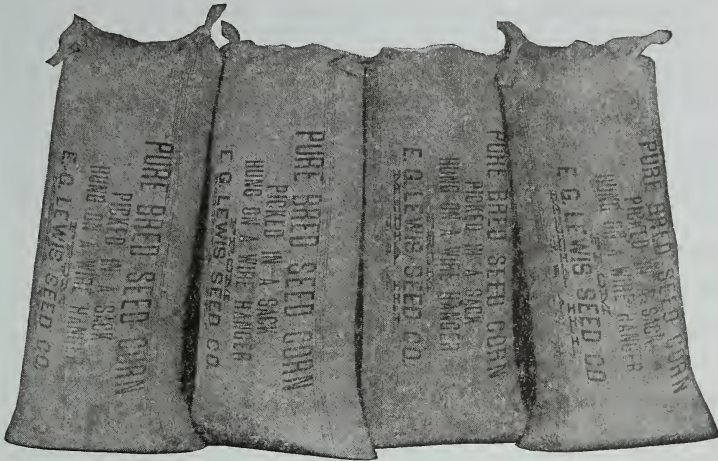 PURE BRED SEED CORN
PICKED IN A SACK
HUNG ON A WIRE HANGER
E. G. LEWIS SEED CO.
PURE BRED SEED CORN
PICKED IN A SACK
HUNG ON A WIRE HANGER
E. G. LEWIS SEED CO.
PURE BRED SEED CORN
PICKED IN A SACK
HUNG ON A WIRE HANGER
E. G. LEWIS SEED CO.
MEDIA ILL.
PURE BRED SEED CORN
PICKED IN A SACK
HUNG ON A WIRE HANGER
E. G. LEWIS SEED CO.
MEDIA ILL.